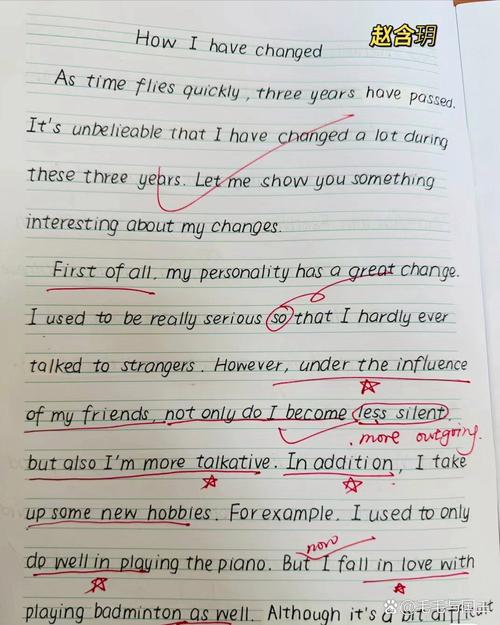 赵含玥
How I have changed
As time flies quickly, three years have passed.
It's unbelieable that I have changed a lot during
these three years. Let me show you something
interesting about my changes.
First of all, my personality has a great change.
I used to be really serious so that I hardly ever
talked to strangers. However, under the influence
of my friends, not only do I become less silent,
more outgoing.
but also I'm more talkative. In addition, I take
up some new hobbies. For example, I used to only
now
do well in playing the piano. But I fall in love with
playing badminton as well. Although it's a bit difficult